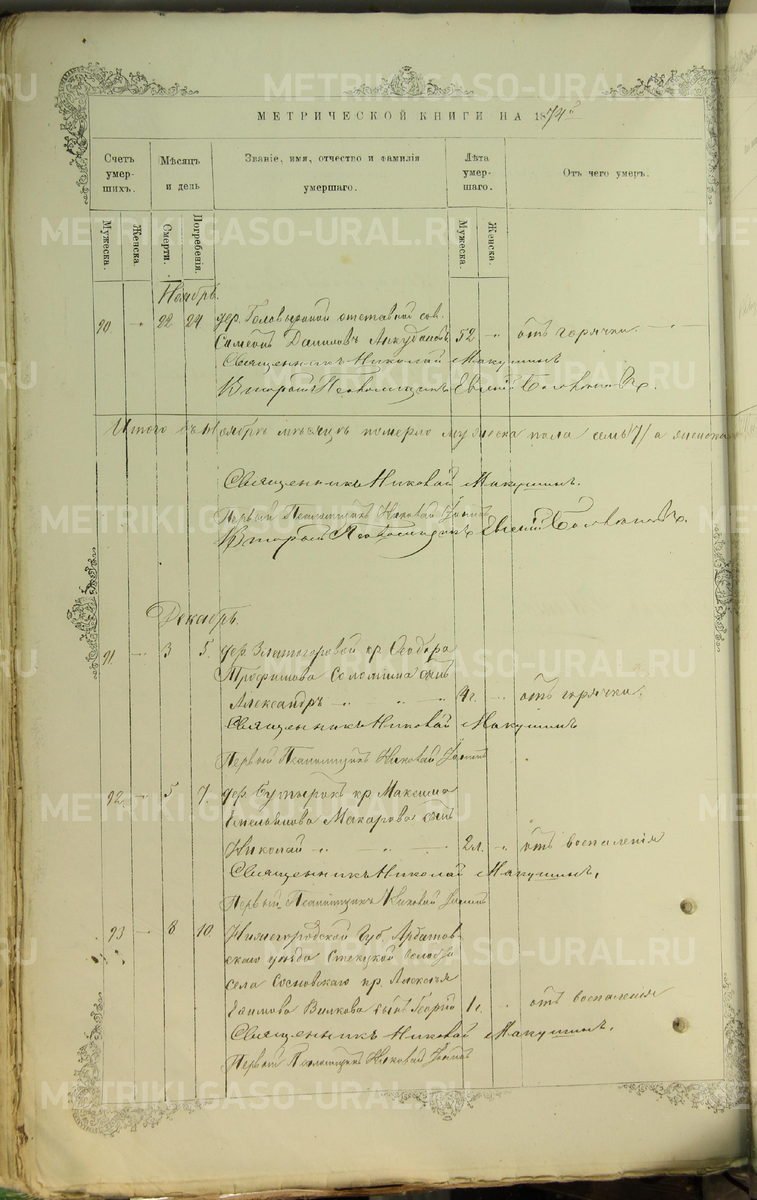 МЕТРИЧЕСКОЙ КНИГИ НА 1874 г.
Счетъ умер-шихъ.
Мѣсяцъ и день
Званіе, имя, отчество и фамилія умершаго.
Лѣта умер-шаго.
Отъ чего умеръ.
Мужеска.
Женска.
Смерти.
Погребенія.
Мужеска.
Женска.
Ноябрь.
90 22 24 дер. отставной
Данилов 52 отъ горячки.
Священникъ Николай Макушинъ
Второй Псаломщикъ Евгеній
Итого въ Ноябрѣ мѣсяцѣ померло мужеска пола семь /7/ а женска
Священникъ Николай Макушинъ.
Первый Псаломщикъ Николай
Второй Псаломщикъ Евгеній
Декабрь.
91. 3 5. дер. кр. Ѳеодора
Трофимова Соломина сынъ
Александръ 4 г. отъ горячки.
Священникъ Николай Макушинъ
Первый Псаломщикъ Николай
92. 5 7. дер. Бутырокъ кр. Максима
Емельянова Макарова сынъ
Николай 2 л. отъ воспаленія
Священникъ Николай Макушинъ.
Первый Псаломщикъ Николай
93 8 10. Нижегородской Губ. Арбатов-
скаго уѣзда
села Сосновскаго кр. Алексѣя
Вилкова сынъ Георгій 1 г. отъ воспаленія
Священникъ Николай Макушинъ.
Первый Псаломщикъ Николай
METRIKI.GASO-URAL.RU